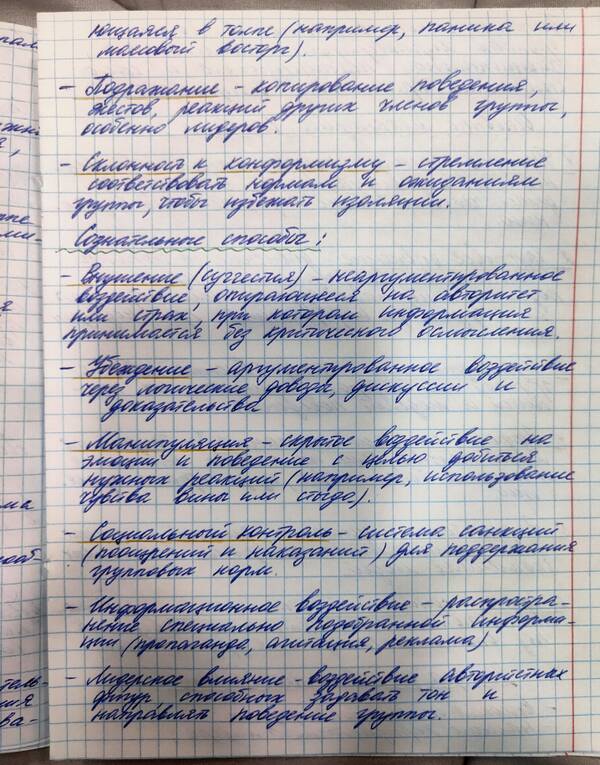 ющаяся в толпе (например, паника или
массовый восторг).
- Подражание - копирование поведения,
жестов, реакций других членов группы,
особенно лидеров.
- Склонность к конформизму - стремление
соответствовать нормам и ожиданиям
группы, чтобы избежать изоляции.
Сознательные способы:
- Внушение (суггестия) - неаргументированное
воздействие, опирающееся на авторитет
или страх, при котором информация
принимается без критического осмысления.
- Убеждение - аргументированное воздействие
через логические доводы, дискуссии и
доказательства
- Манипуляция - скрытое воздействие на
эмоции и поведение с целью добиться
нужных реакций (например, использование
чувства вины или стыда).
- Социальный контроль - система санкций
(поощрений и наказаний) для поддержания
групповых норм.
- Информационное воздействие - распростра-
нение специально подобранной информа-
ции (пропаганда, агитация, реклама)
- Лидерское влияние - воздействие авторитетных
фигур, способных задавать тон и
направлять поведение группы.